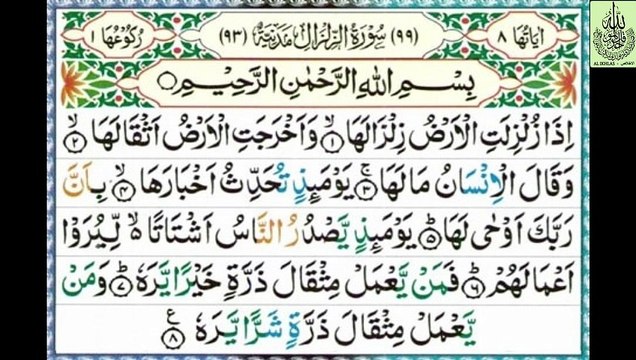 اٰیَاتُهَا ٨ (٩٩) سُوْرَةُ الزِّلْزَالِ مَدَنِيَّةٌ (٩٣) رُكُوْعُهَا ١
AL IKHLAS
بِسْمِ اللّٰهِ الرَّحْمٰنِ الرَّحِيْمِ
اِذَا زُلْزِلَتِ الْاَرْضُ زِلْزَالَهَا ۙ﴿١﴾ وَاَخْرَجَتِ الْاَرْضُ اَثْقَالَهَا ۙ﴿٢﴾
وَقَالَ الْاِنْسَانُ مَا لَهَا ۚ﴿٣﴾ يَوْمَئِذٍ تُحَدِّثُ اَخْبَارَهَا ۙ﴿٤﴾ بِاَنَّ
رَبَّكَ اَوْحٰى لَهَا ؕ﴿٥﴾ يَوْمَئِذٍ يَّصْدُرُ النَّاسُ اَشْتَاتًا ۙ۬ لِّيُرَوْا
اَعْمَالَهُمْ ؕ﴿٦﴾ فَمَنْ يَّعْمَلْ مِثْقَالَ ذَرَّةٍ خَيْرًا يَّرَهٗ ؕ﴿٧﴾ وَمَنْ
يَّعْمَلْ مِثْقَالَ ذَرَّةٍ شَرًّا يَّرَهٗ ﴿٨﴾ ع